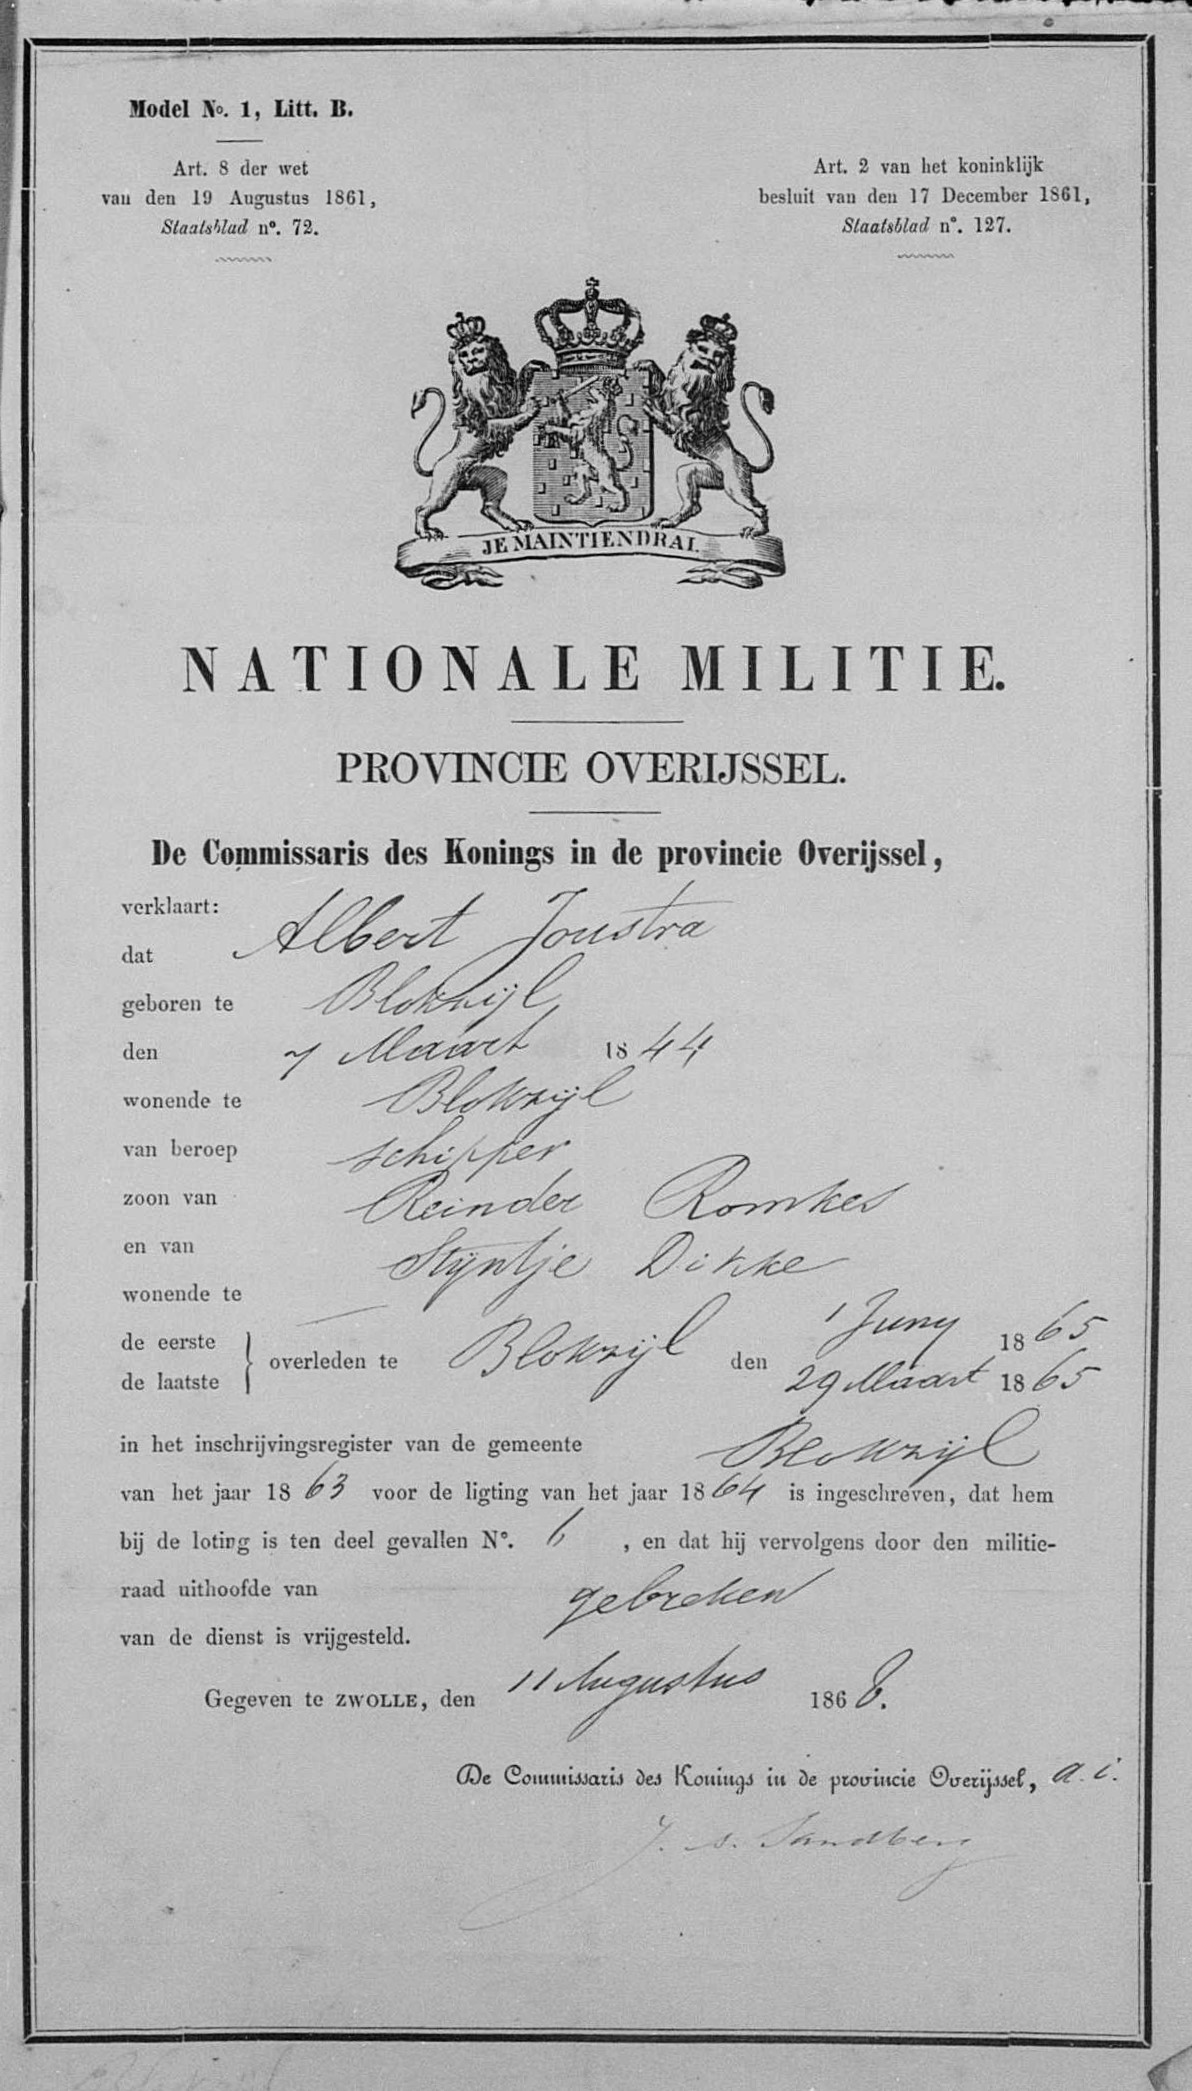 Model No. 1, Litt. B.
Art. 8 der wet
van den 19 Augustus 1861,
Staatsblad n°. 72.
Art. 2 van het koninklijk
besluit van den 17 December 1861,
Staatsblad n°. 127.
JE MAINTIENDRAI.
NATIONALE MILITIE.
PROVINCIE OVERIJSSEL.
De Commissaris des Konings in de provincie Overijssel,
verklaart:
dat Albert Joustra
geboren te Blokzijl
den 7 Maart 1844
wonende te Blokzijl
van beroep schipper
zoon van Reinder Romkes
en van Stijntje Dikke
wonende te —
de eerste overleden te Blokzijl den 1 Juny 1865
de laatste 29 Maart 1865
in het inschrijvingsregister van de gemeente Blokzijl
van het jaar 1863 voor de ligting van het jaar 1864 is ingeschreven, dat hem
bij de loting is ten deel gevallen N°. 6 , en dat hij vervolgens door den militie-
raad uithoofde van gebreken
van de dienst is vrijgesteld.
Gegeven te ZWOLLE, den 11 Augustus 1868.
De Commissaris des Konings in de provincie Overijssel, a. i.
Sandberg